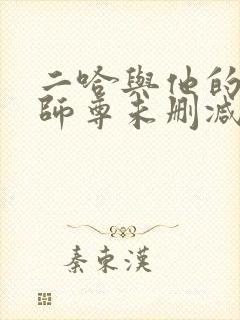 二哈與他的
師尊未删减
秦東漢